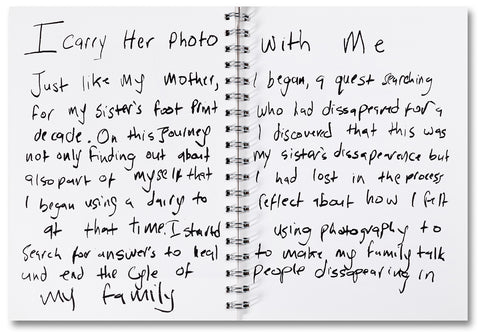 I Carry Her Photo With Me
Just like my mother, I began, a quest searching
for my sister's foot print who had dissapeared for a
decade. On this Journey I discovered that this was
not only finding out about my sister's dissapearence but
also part of myself that I had lost in the process
I began using a dairy to reflect about how I felt
at that time. I started using photography to
search for answer's to heal to make my family talk
and end the Cyle of people dissapearing in
my family